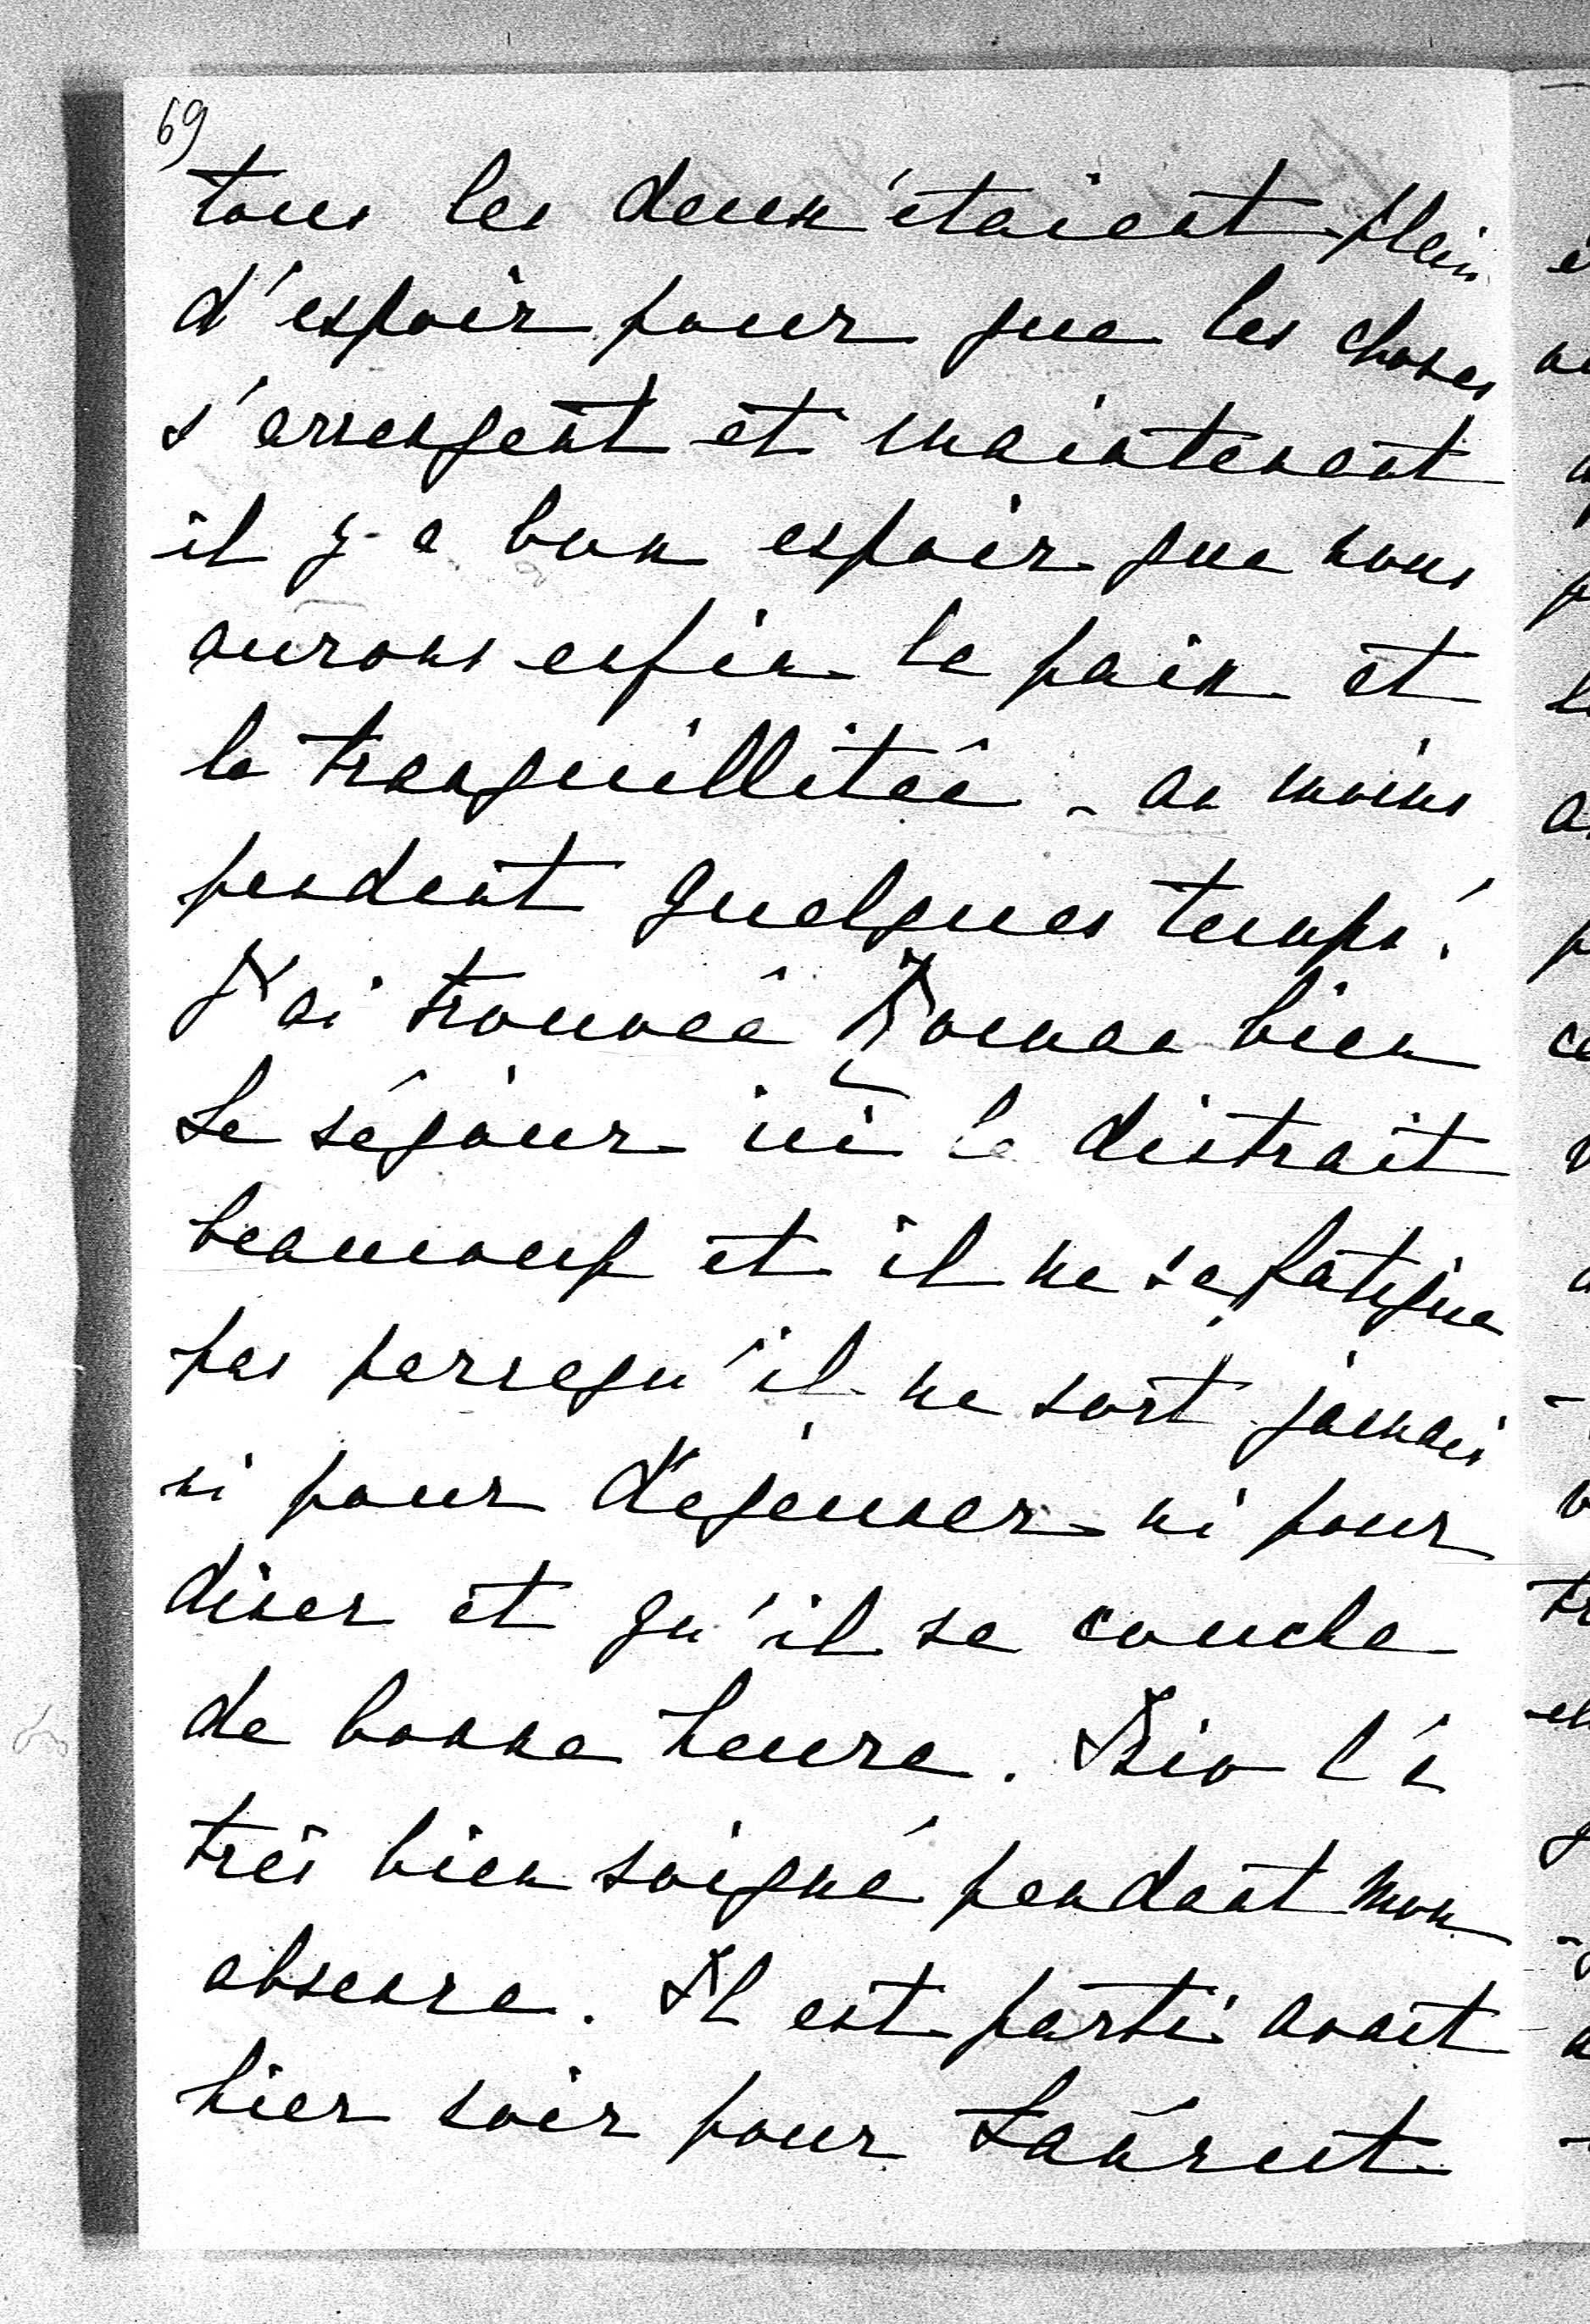 69
tous les deux étaient plein
d'espoir pour que les choses
s'arrengent et maintenant
il y a bon espoir que nous
aurons enfin la paix et
la tranquillitée - au moins
pendant quelques temps!
J'ai trouvée bien
Le séjour ici le distrait
beaucoup et il ne se fatigue
pas parcequ'il ne sort jamais
ni pour déjeuner ni pour
diner et qu'il se couche
de bonne heure. l'a
très bien soigné pendant mon
absence. Il est parti avant
hier soir pour